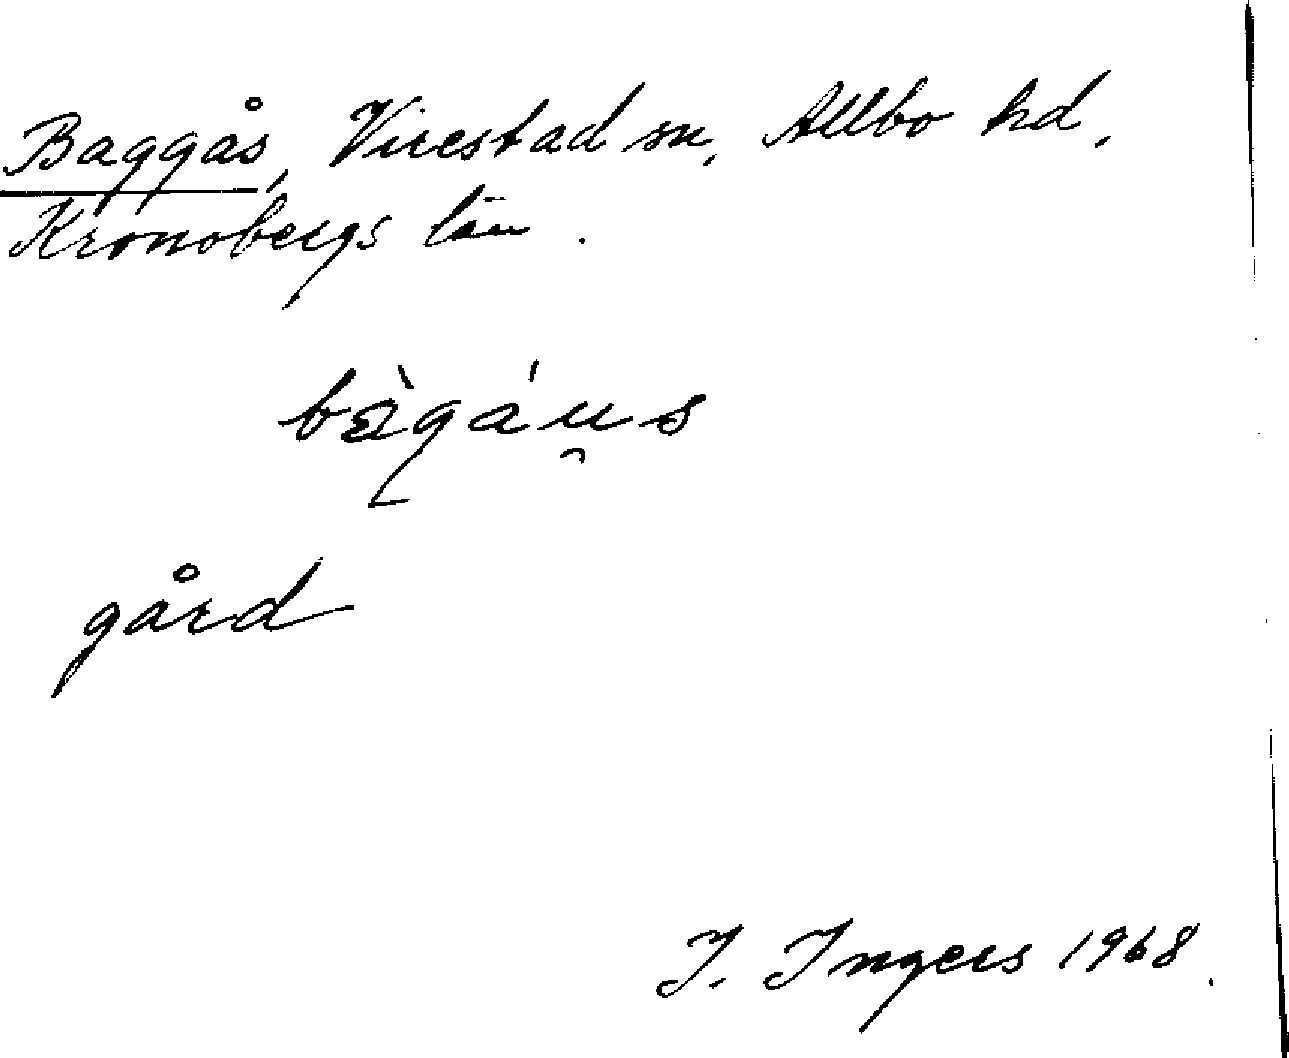 Baggås, Virestad sn, Allbo hd,
Kronobergs län.
bàgáu̯s
gård
I. Ingers 1968.